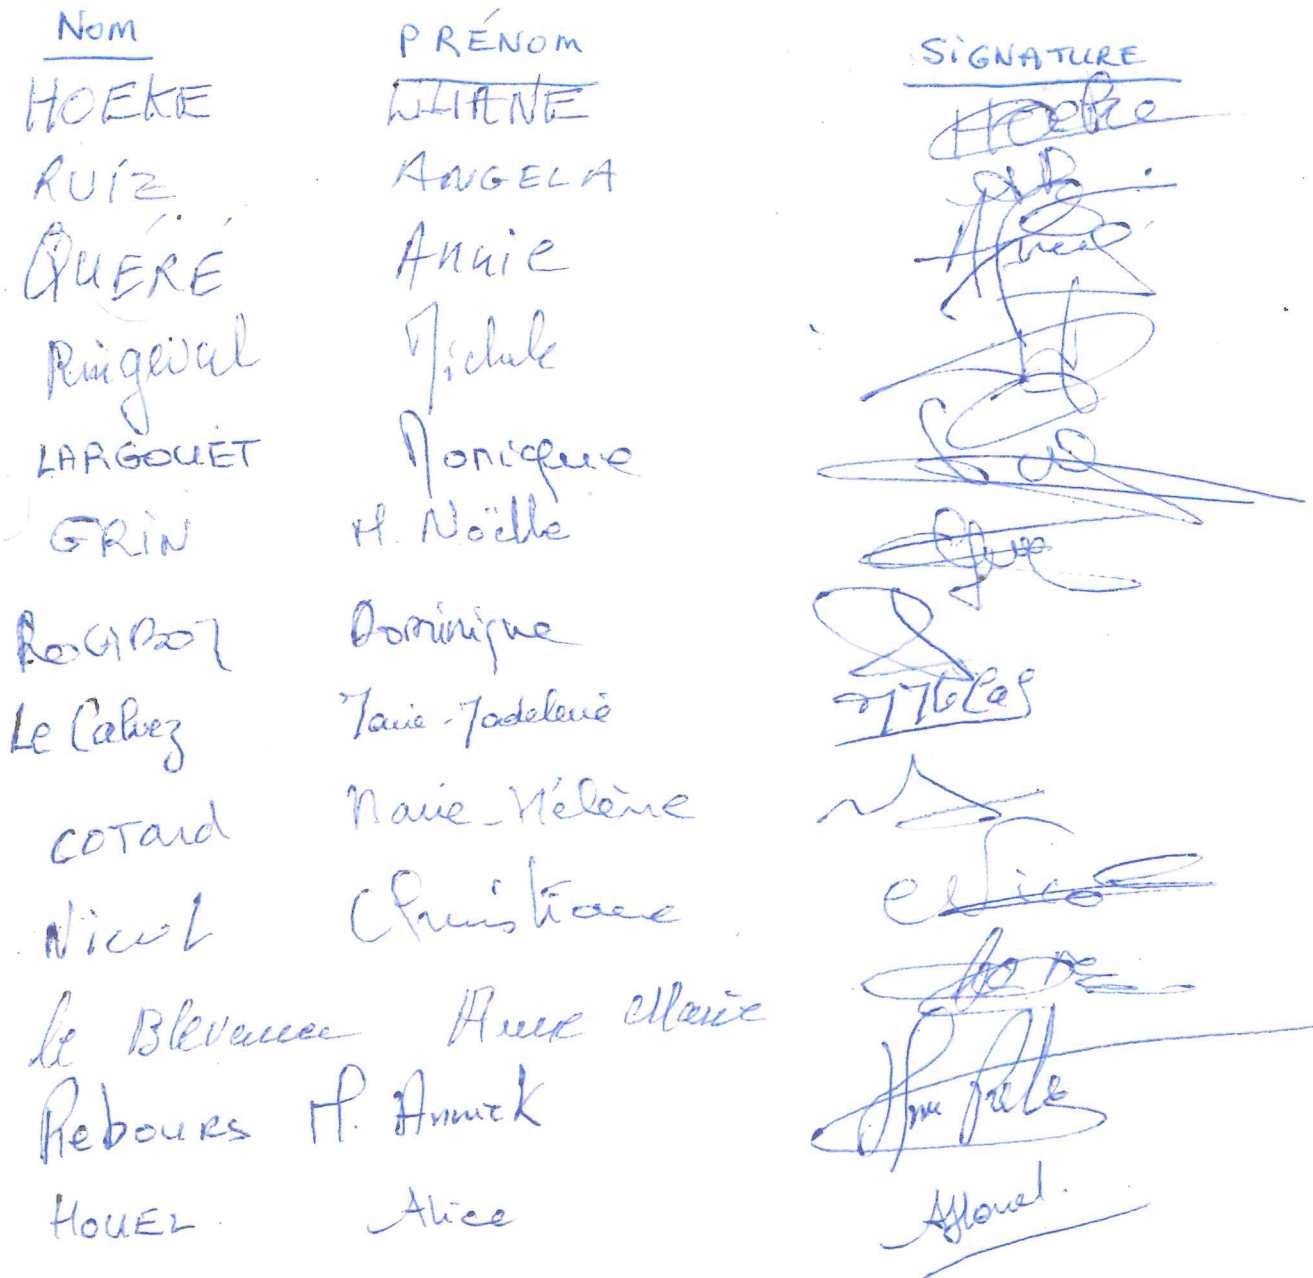 NOM PRÉNOM SIGNATURE
HOEKE LILIANE Hoeke
RUIZ ANGELA
QUÉRÉ Annie
Ringeval Michele
LARGOUET Monique
GRIN M. Noëlle
Dominique
Le Calvez Marie-Madeleine
COTARD Marie-Hélène
Nicol Christiane Nicol
le Blevenec Anne Marie
Rebours M. Annick
HOUEL Alice AHouel.